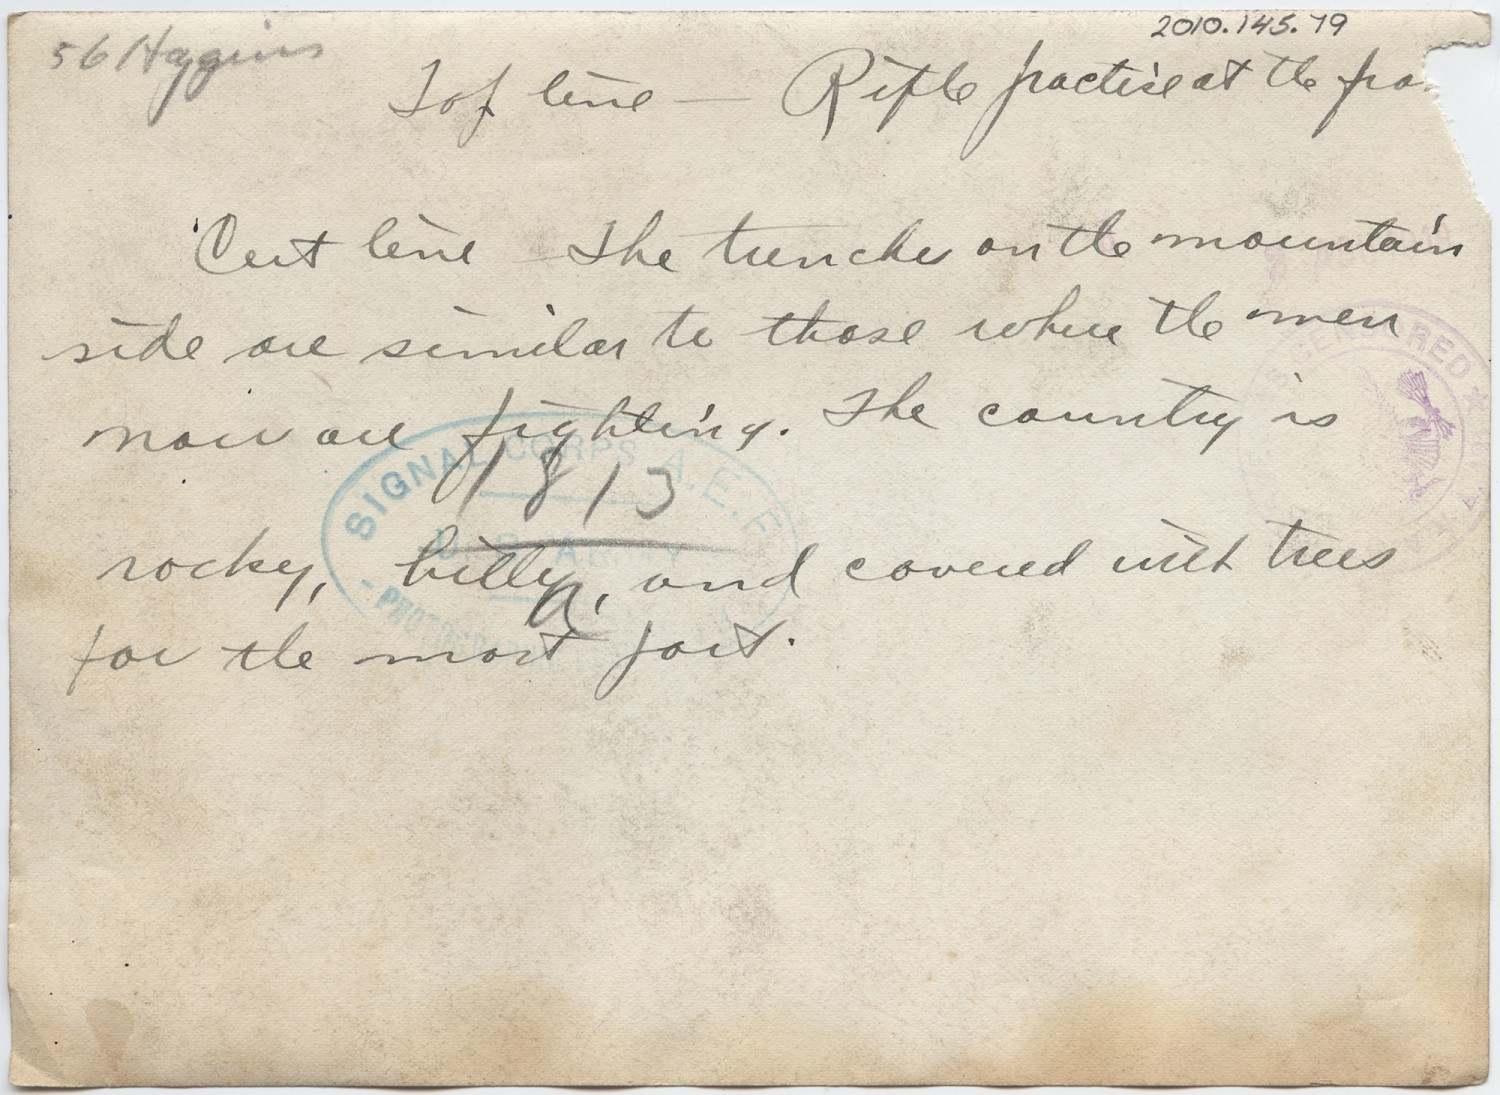 2010.145.79
56 Higgins
Top line — Rifle practise at the fro
Cut line – The trenches on the mountain
side are similar to those where the men
now are fighting. The country is
1813
rocky, hilly, and covered with trees
A
for the most part.
SIGNAL CORPS A.E.F.
U.S. ARMY
CENSORED